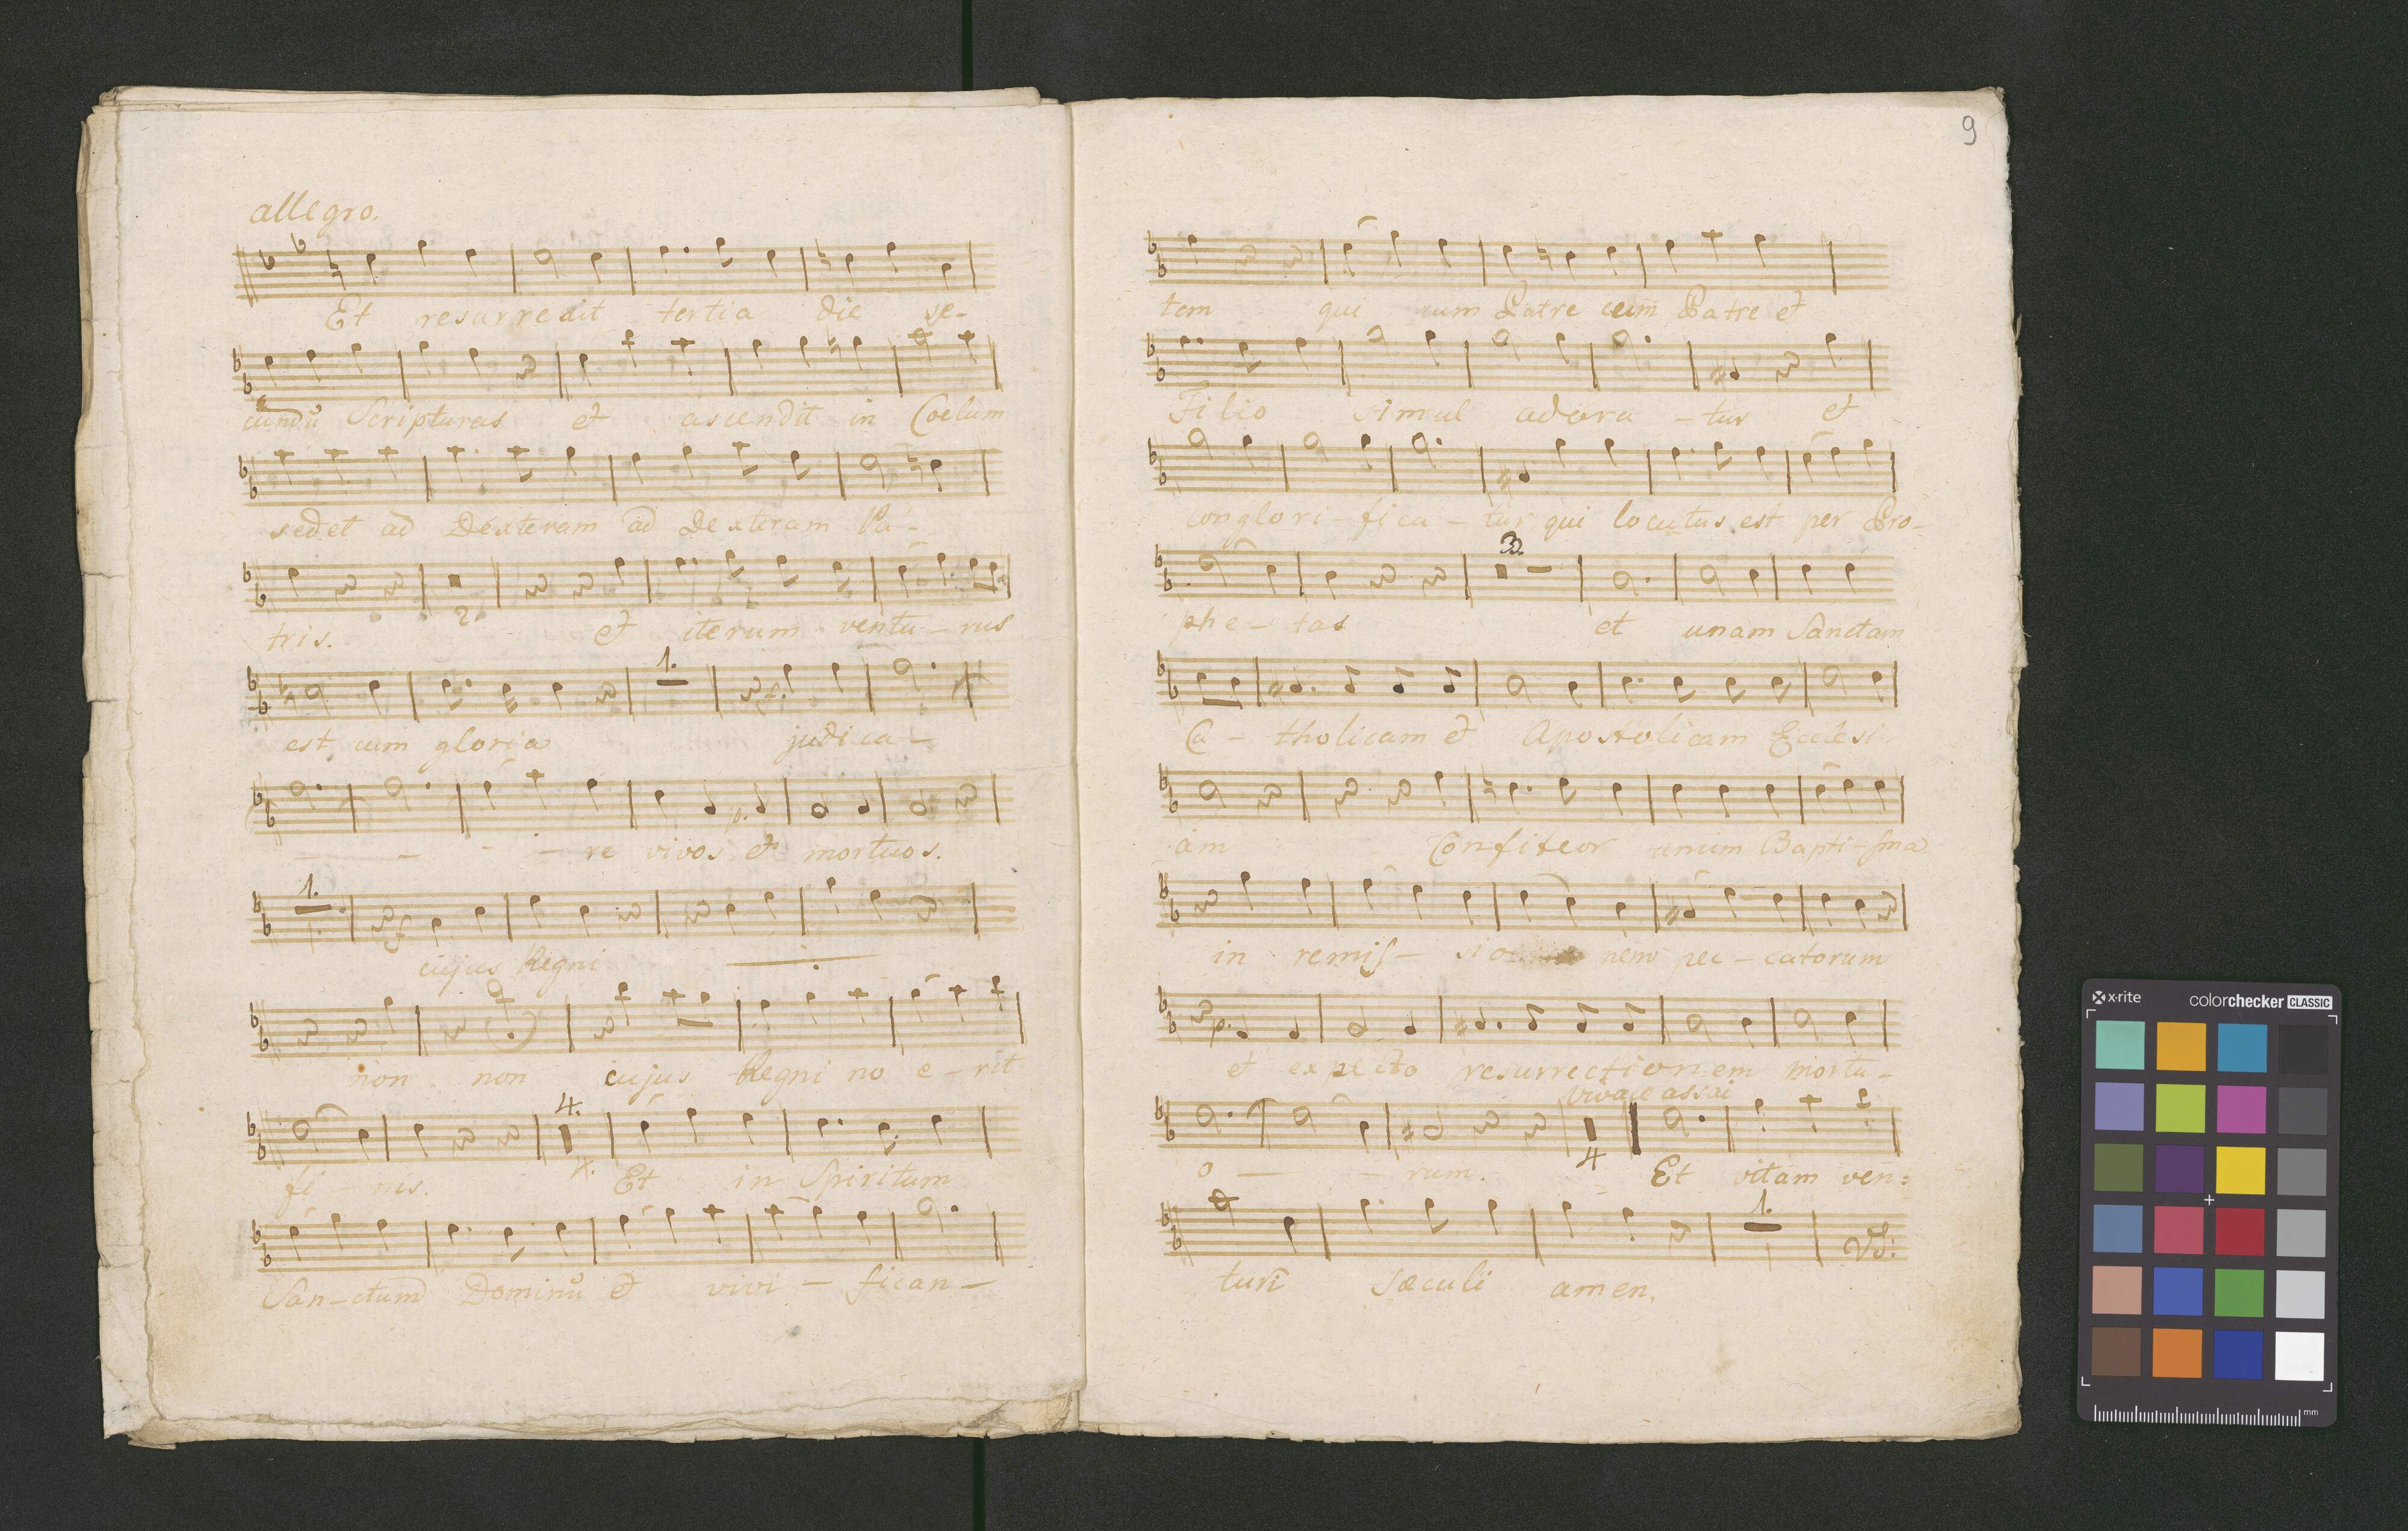 allegro.
Et resurredit tertia die se-
cundũ Scripturas et ascendit in Coelum
sedet ad Dexteram ad Dexteram Pa-
2.
tris. et iterum ventu-rus
1.
f.
est cum gloria judica-
p.
- - - - re vivos et mortuos.
1.
f
cujus Regni
non non cujus Regni no e-rit
4.
4.
fi-nis. Et in Spiritum
San-ctum Dominũ et vivi-fican-
9
tem qui cum Patre cum Patre et
Filio simul adora-tur et
conglori-fica-tur qui locutus est per Pro-
3.
phe-tas et unam Sanctam
Ca-tholicam et Apostolicam Eclesi-
am Confiteor unum Bapti-sma
in remis-sio nem pec-catorum
p.
et expecto resurrectionem mortu-
vivace assai
4
o - - rum. Et vitam ven:
1.
VS:
turi sæculi amen.
x·rite colorchecker CLASSIC
mm